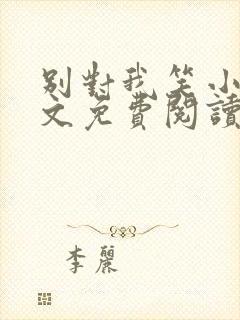 別對我笑小
文免費閱讀
李麗